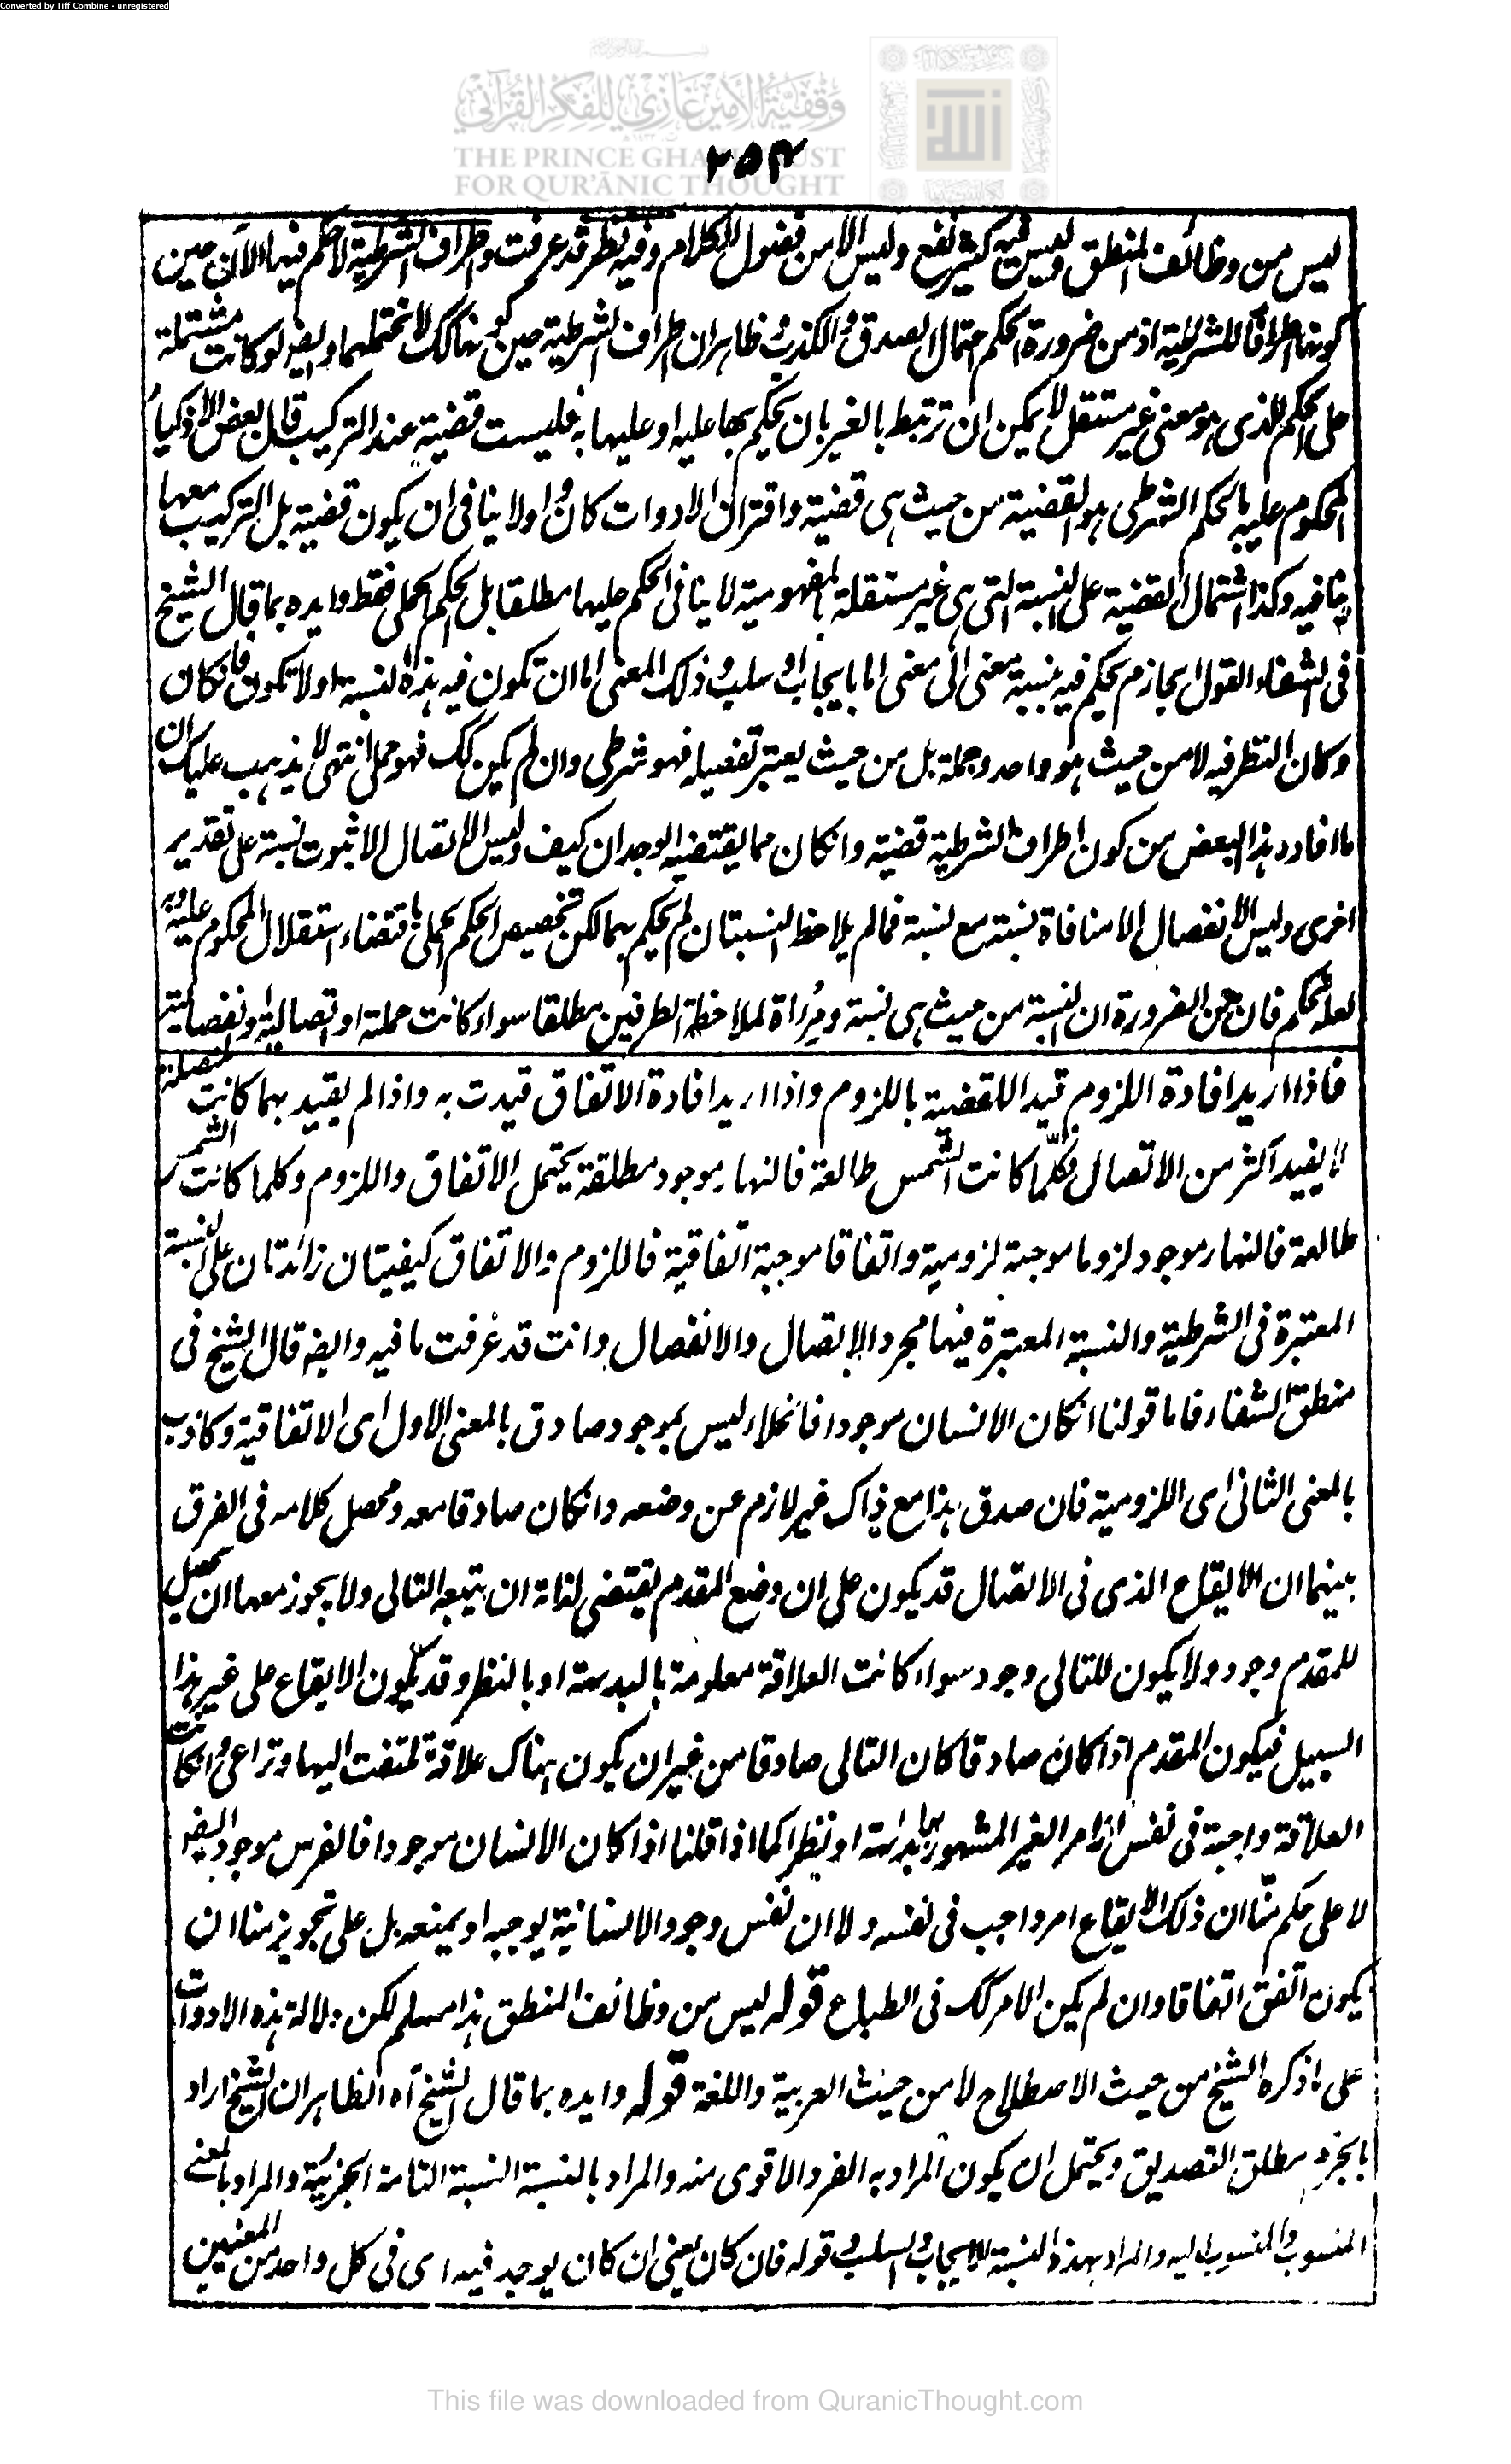 Converted by Tiff Combine - unregistered
وقفية الأمير غازي للفكر القرآني
THE PRINCE GHAZI TRUST
FOR QUR'ĀNIC THOUGHT
٢٥٤
ليس من وظائف المنطق وليس فيه كثير نفع وليس الا من فضول الكلام وفيه نظر قد عرفت واطراف الشرطية لا حكم فيها الآن حين
كونها اطرافا للشرطية اذ من ضرورة الحكم احتمال الصدق والكذب وظاهر ان اطراف الشرطية حين كونها كذلك لا تحتملهما وايضا لو كانت مشتملة
على الحكم الذى هو معنى غير مستقل لا يمكن ان ترتبط بالغير بان يحكم بها عليه او عليها به فليست قضية عند التركيب قال بعض الاذكياء
المحكوم عليه بالحكم الشرطى هو القضية من حيث هى قضية واقتران الادوات كان او لا ينافى ان يكون قضية بل التركيب معها
ينافيه وكذا اشتمال القضية على النسبة التى هى غير مستقلة بالمفهومية لا ينافى الحكم عليها مطلقا بل الحكم الحملى فقط وايده بما قال الشيخ
فى الشفاء القول الجازم يحكم فيه بنسبة معنى الى معنى اما بايجاب او سلب وذلك المعنى اما ان تكون فيه هذه النسبة او لا تكون فان كان
وكان النظر فيه لا من حيث هو واحد وجملة بل من حيث يعتبر تفصيله فهو شرطى وان لم يكن كك فهو حملى انتهى لا يذهب عليك ان
ما افاد هذا البعض من كون اطراف الشرطية قضية وانكان مما يقتضيه الوجدان كيف وليس الاتصال الا ثبوت نسبة على تقدير
اخرى وليس الانفصال الا منافاة نسبة مع نسبة فمالم يلاحظ النسبتان لم يحكم بهما لكن تخصيص الحكم الحملى باقتضاء استقلال المحكوم عليه وبه
لعله تحكم فان من الضرورة ان النسبة من حيث هى نسبة ومرآة لملاحظة الطرفين مطلقا سواء كانت حملية او اتصالية او انفصالية
فاذا اريد افادة اللزوم قيد القضية باللزوم واذا اريد افادة الاتفاق قيدت به واذا لم يقيد بهما كانت متصلة
لا يفيد اكثر من الاتصال فكلما كانت الشمس طالعة فالنهار موجود مطلقة يحتمل الاتفاق واللزوم وكلما كانت الشمس
طالعة فالنهار موجود لزوما موجبة لزومية واتفاقا موجبة اتفاقية فاللزوم والاتفاق كيفيتان زائدتان على النسبة
المعتبرة فى الشرطية والنسبة المعتبرة فيها مجرد الاتصال والانفصال وانت قد عرفت ما فيه وايضا قال الشيخ فى
منطق الشفاء فاما قولنا انكان الانسان موجودا فالخلاء ليس بموجود صادق بالمعنى الاول اى الاتفاقية وكاذب
بالمعنى الثانى اى اللزومية فان صدق هذا مع ذاك غير لازم عن وضعه وانكان صادقا معه ومحصل كلامه فى الفرق
بينهما ان الايقاع الذى فى الاتصال قد يكون على ان وضع المقدم يقتضى لذاته ان يتبعه التالى ولا يجوز معها ان يحصل
للمقدم وجود ولا يكون للتالى وجود سواء كانت العلاقة معلومة بالبديهة او بالنظر وقد يكون الايقاع على غير هذا
السبيل فيكون المقدم اذا كان صادقا كان التالى صادقا من غير ان يكون هناك علاقة تلتفت اليها وتراعى وانكانت
العلاقة واجبة فى نفس الامر الغير المشهور بها بداهة او نظرا كما اذا قلنا اذا كان الانسان موجودا فالفرس موجود ايضا
لا على حكم منا ان ذلك الايقاع امر واجب فى نفسه ولا ان نفس وجود الانسانية يوجبه او يمنعه بل على تجويز منا ان
يكون اتفق اتفاقا وان لم يكن الامر كك فى الطباع قوله ليس من وظائف المنطق هذا مسلم لكن دلالة هذه الادوات
على ما ذكره الشيخ من حيث الاصطلاح لا من حيث العربية واللغة قوله وايده بما قال الشيخ آه الظاهر ان الشيخ اراد
بالجزم مطلق التصديق ويحتمل ان يكون المراد به الفرد الاقوى منه والمراد بالنسبة النسبة التامة الخبرية والمراد بالمعنى
المنسوب والمنسوب اليه والمراد بهذه النسبة الايجاب والسلب قوله فان كان يعنى ان كان يوجد فيه اى فى كل واحد من المعنيين
This file was downloaded from QuranicThought.com